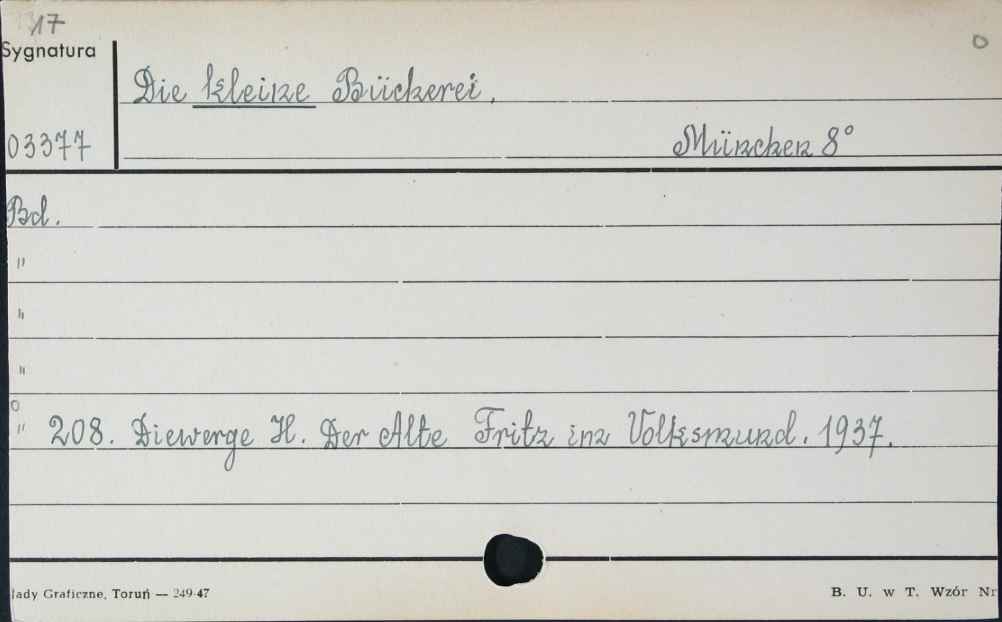 17
Sygnatura
0
Die kleine Bückerei.
03377
München 8°
Bd.
"
"
"
0
" 208. Diewerge H. Der Alte Fritz im Volksmund. 1937.
łady Graficzne, Toruń — 249-47
B. U. w T. Wzór Nr